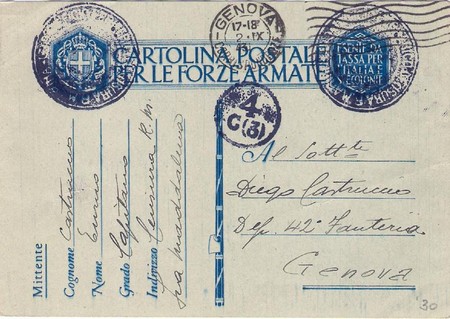 GENOVA
17-18
2.IX
CARTOLINA POSTALE
PER LE FORZE ARMATE
ESENTE DA
TASSA PER
L'ITALIA E
4
C(3)
Al Sott te
Diego Castruccio
Dep. 42° Fanteria
Genova
Mittente
Cognome Castruccio
Nome
Grado Capitano
Indirizzo Censura R. M.
Via Maddalena
30